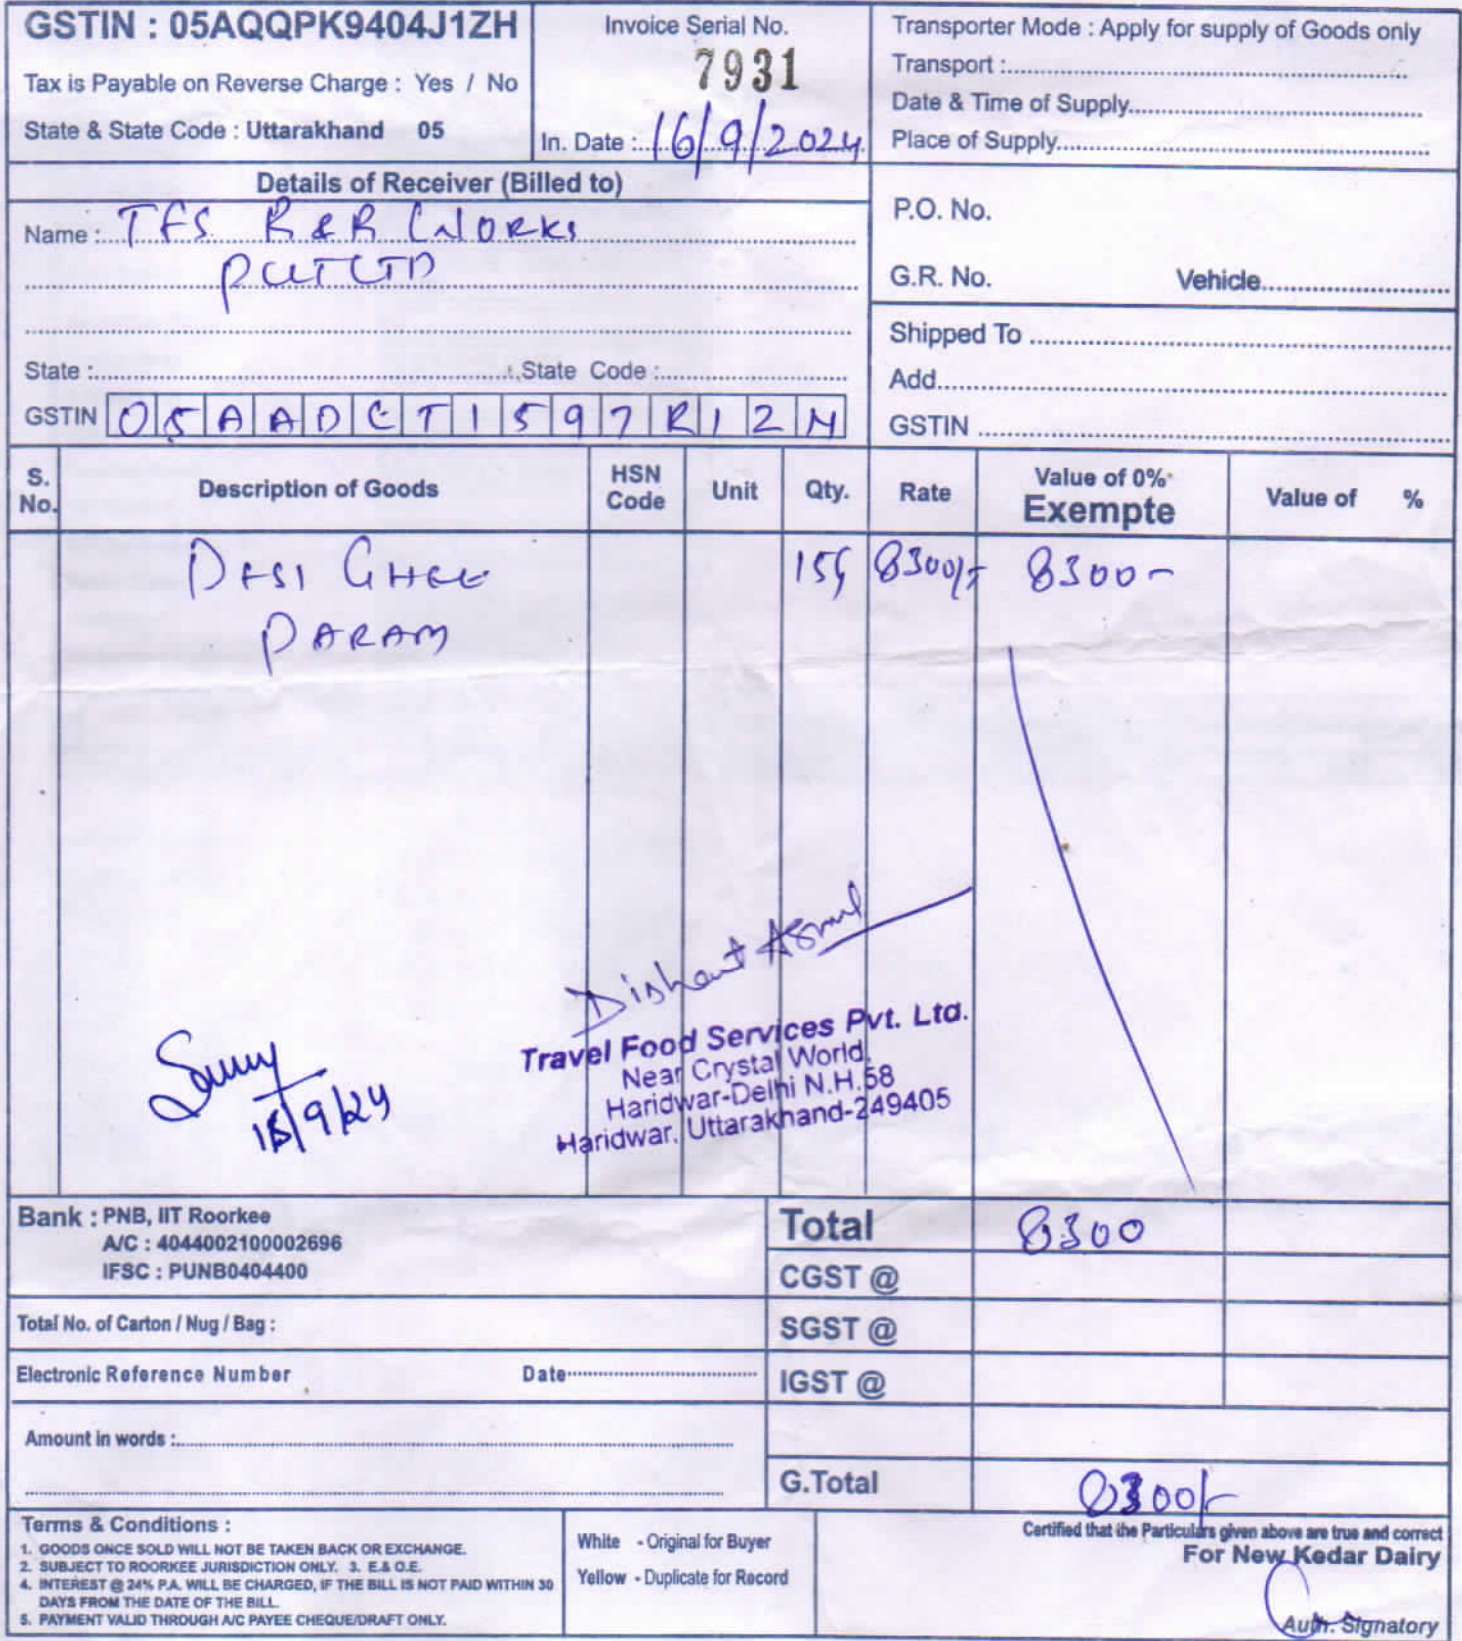 GSTIN : 05AQQPK9404J1ZH
Tax is Payable on Reverse Charge : Yes / No
State & State Code : Uttarakhand 05
Invoice Serial No.
7931
In. Date : 16/9/2024
Transporter Mode : Apply for supply of Goods only
Transport :
Date & Time of Supply
Place of Supply
Details of Receiver (Billed to)
Name : TFS R&R WORKS
PVT LTD
State : State Code :
GSTIN 05AADCT1597R1ZN
P.O. No.
G.R. No. Vehicle
Shipped To
Add
GSTIN
S. No. Description of Goods HSN Code Unit Qty. Rate Value of 0% Exempte Value of %
DESI GHEE 8300/- 8300-
PARAM
Travel Food Services Pvt. Ltd.
Near Crystal World,
Haridwar-Delhi N.H.58
Haridwar, Uttarakhand-249405
Bank : PNB, IIT Roorkee
A/C : 4044002100002696
IFSC : PUNB0404400
Total No. of Carton / Nug / Bag :
Electronic Reference Number Date
Amount in words :
Total 8300
CGST @
SGST @
IGST @
G.Total 8300/-
Terms & Conditions :
1. GOODS ONCE SOLD WILL NOT BE TAKEN BACK OR EXCHANGE.
2. SUBJECT TO ROORKEE JURISDICTION ONLY. 3. E.& O.E.
4. INTEREST @ 24% P.A. WILL BE CHARGED, IF THE BILL IS NOT PAID WITHIN 30
DAYS FROM THE DATE OF THE BILL.
5. PAYMENT VALID THROUGH A/C PAYEE CHEQUE/DRAFT ONLY.
White - Original for Buyer
Yellow - Duplicate for Record
Certified that the Particulars given above are true and correct
For New Kedar Dairy
Auth. Signatory